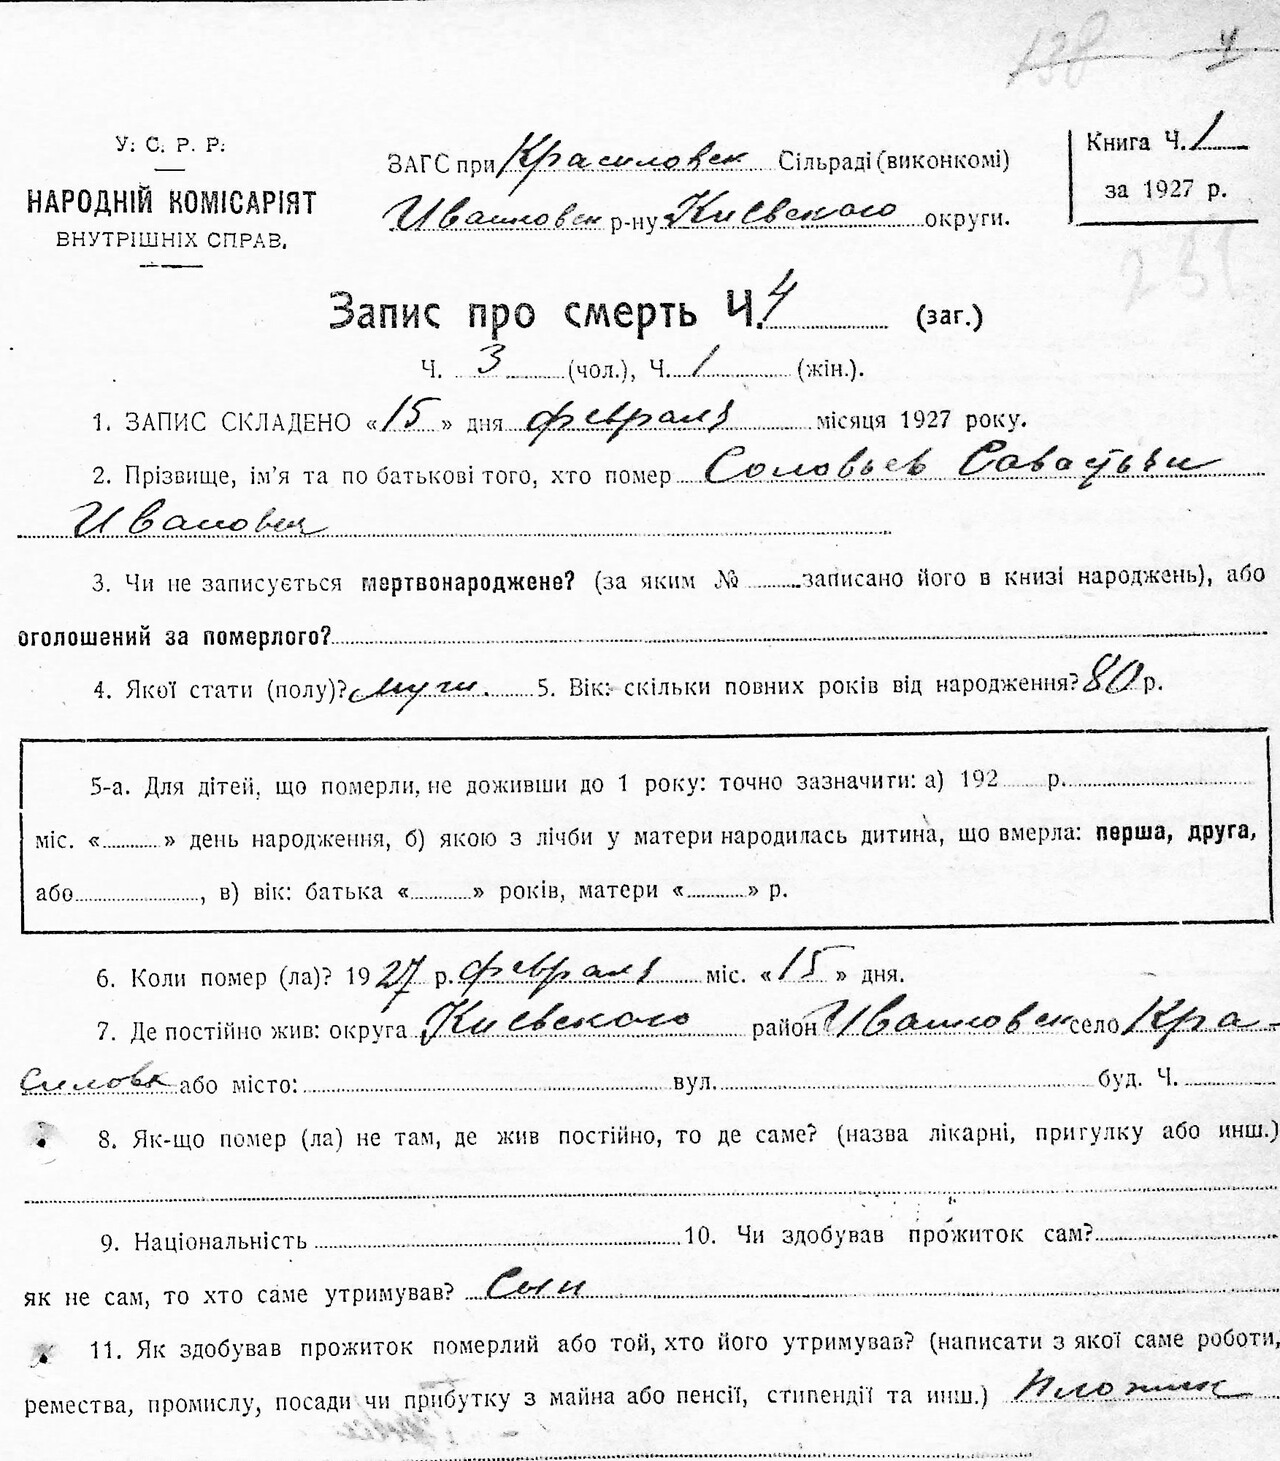 138 4
У. С. Р. Р.
НАРОДНІЙ КОМІСАРІЯТ
ВНУТРІШНІХ СПРАВ.
ЗАГС при Красиловск Сільраді (виконкомі)
Ивановск р-ну Киевского округи.
Книга Ч. 1
за 1927 р.
Запис про смерть Ч. 4 (заг.)
Ч. 3 (чол.), Ч. 1 (жін.).
1. ЗАПИС СКЛАДЕНО «15» дня февраля місяця 1927 року.
2. Прізвище, ім'я та по батькові того, хто помер Соловьев Савастьян
Иванович
3. Чи не записується мертвонароджене? (за яким № записано його в книзі народжень), або
оголошений за померлого?
4. Якої стати (полу)? муж. 5. Вік: скільки повних років від народження? 80 р.
5-а. Для дітей, що померли, не доживши до 1 року: точно зазначити: а) 192 р.
міс. « » день народження, б) якою з лічби у матери народилась дитина, що вмерла: перша, друга,
або , в) вік: батька « » років, матери « » р.
6. Коли помер (ла)? 1927 р. февраля міс. «15» дня.
7. Де постійно жив: округа Киевского район Ивановск село Кра-
силовк або місто: вул. буд. Ч.
8. Як-що помер (ла) не там, де жив постійно, то де саме? (назва лікарні, пригулку або инш.)
9. Національність 10. Чи здобував прожиток сам?
як не сам, то хто саме утримував? Сын
11. Як здобував прожиток померлий або той, хто його утримував? (написати з якої саме роботи,
ремества, промислу, посади чи прибутку з майна або пенсії, стипендії та инш.)